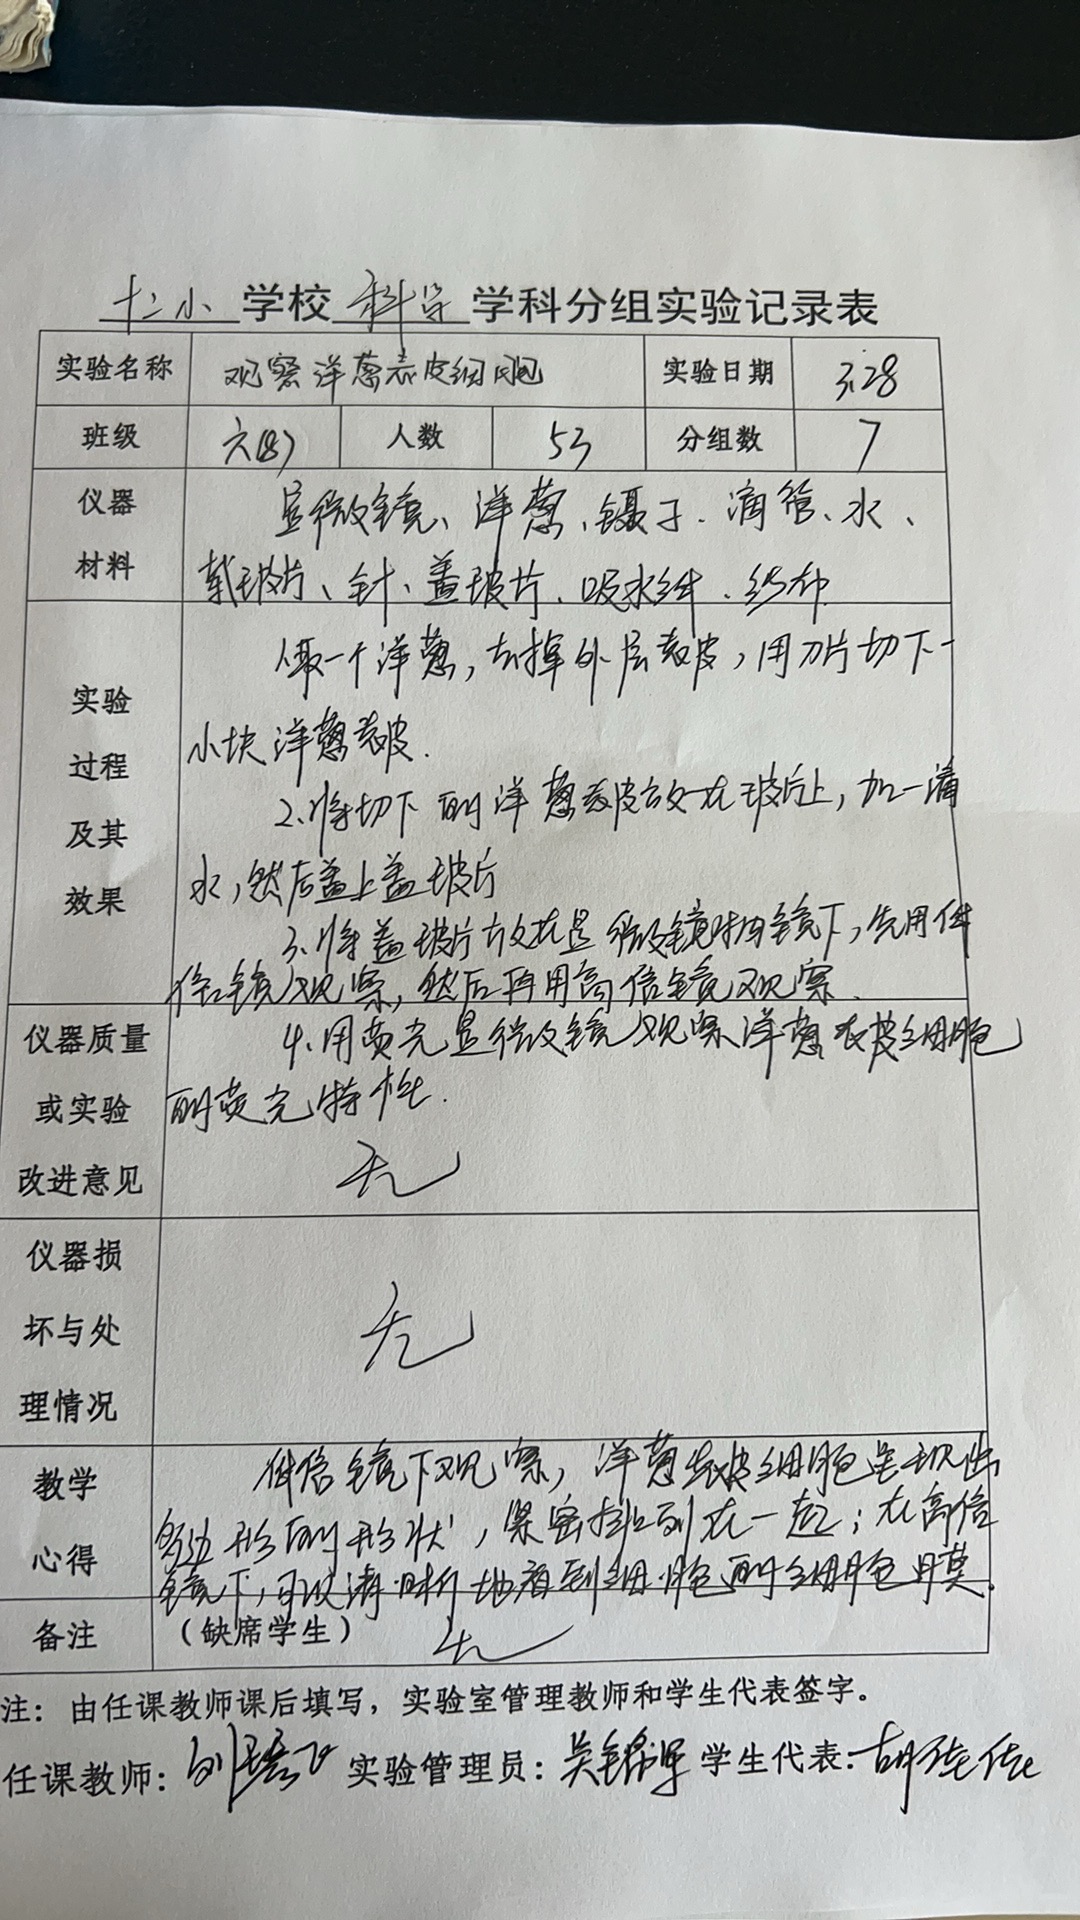 十二小 学校 科学 学科分组实验记录表
实验名称 观察洋葱表皮细胞 实验日期 3.28
班级 六(8) 人数 53 分组数 7
仪器材料
显微镜、洋葱、镊子、滴管、水、
载玻片、针、盖玻片、吸水纸、纱布
实验过程及其效果
1.取一个洋葱,去掉外层表皮,用刀片切下一
小块洋葱表皮.
2、将切下的洋葱表皮放在玻片上,加一滴
水,然后盖上盖玻片
3.将盖玻片放在显微镜物镜下,先用低
倍镜观察,然后再用高倍镜观察.
4、用荧光显微镜观察洋葱表皮细胞
的荧光特性.
仪器质量或实验改进意见
无
仪器损坏与处理情况
无
教学心得
低倍镜下观察,洋葱表皮细胞呈现出
多边形的形状,紧密排列在一起;在高倍
镜下,可以清晰地看到细胞的细胞膜.
备注 (缺席学生) 无
注:由任课教师课后填写,实验室管理教师和学生代表签字。
任课教师: 实验管理员: 学生代表: